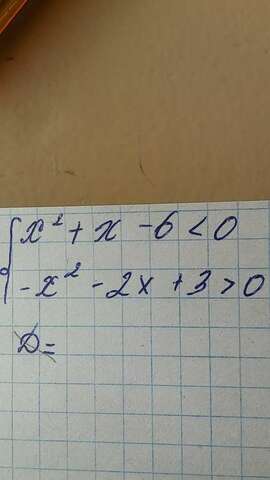 { x² + x - 6 < 0
- x² - 2x + 3 > 0
D =